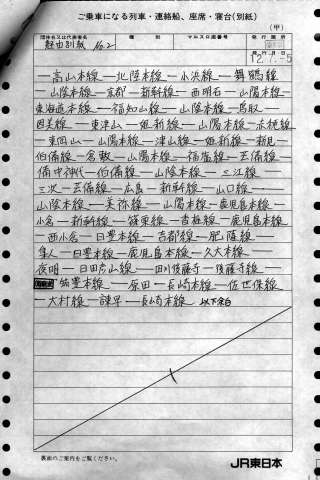 ご乗車になる列車・連絡船、座席・寝台(別紙)
(甲)
団体名又は代表者名
種別
マルス口座番号
発行箇所
経由別紙 No.2
発行月日
12.7.-5
—高山本線—北陸本線—小浜線—舞鶴線
—山陰本線—京都—新幹線—西明石—山陽本線
東海道本線—福知山線—山陰本線—鳥取
因美線—東津山—姫新線—山陽本線—赤穂線
—東岡山—山陽本線—津山線—姫新線—新見—
伯備線—倉敷—山陽本線—福塩線—芸備線
備中神代—伯備線—山陰本線—三江線
三次—芸備線—広島—新幹線—山口線—
山陰本線—美祢線—山陽本線—鹿児島本線
小倉—新幹線—篠栗線—香椎線—鹿児島本線
—西小倉—日豊本線—吉都線—肥薩線
隼人—日豊本線—鹿児島本線—久大本線—
夜明—日田彦山線—田川後藤寺—後藤寺線—
筑豊本線—原田—長崎本線—佐世保線
—大村線—諫早—長崎本線 以下余白
裏面のご案内をご覧ください。
JR東日本